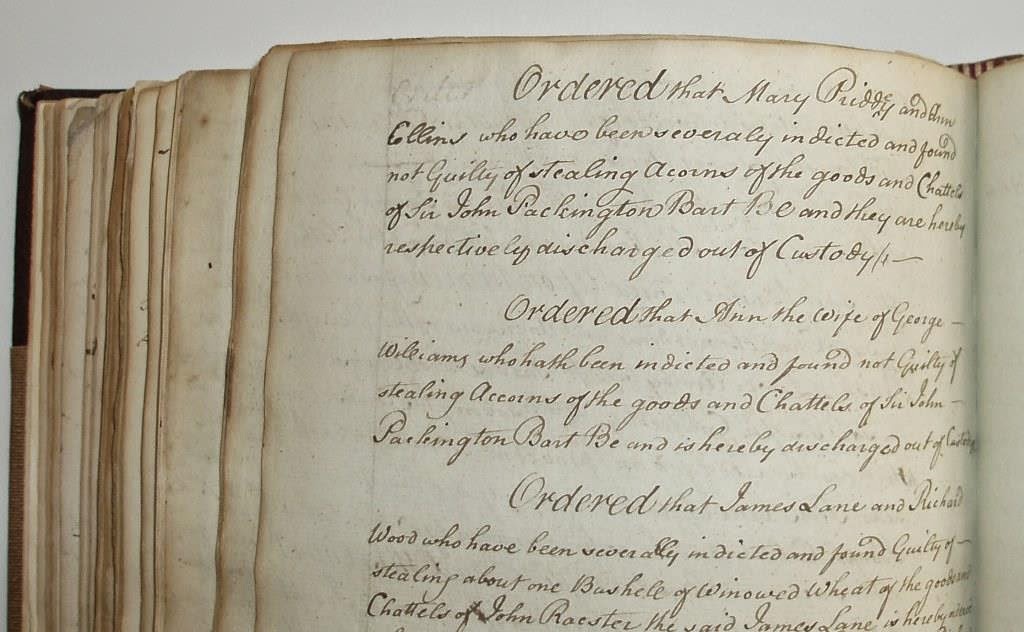 Ordered that Mary Priddey and Ann
Ellins who have been severaly indicted and found
not Guilty of stealing Acorns of the goods and Chattels
of Sir John Packington Bart Be and they are hereby
respectively discharged out of Custody/1—
Ordered that Ann the Wife of George —
Williams who hath been indicted and found not Guilty of
stealing Accorns of the goods and Chattels of Sir John —
Packington Bart Be and is hereby discharged out of Custody
Ordered that James Lane and Richard
Wood who have been severally indicted and found Guilty of —
stealing about one Bushell of Winowed Wheat of the goods and
Chattels of John Raester the said James Lane is hereby